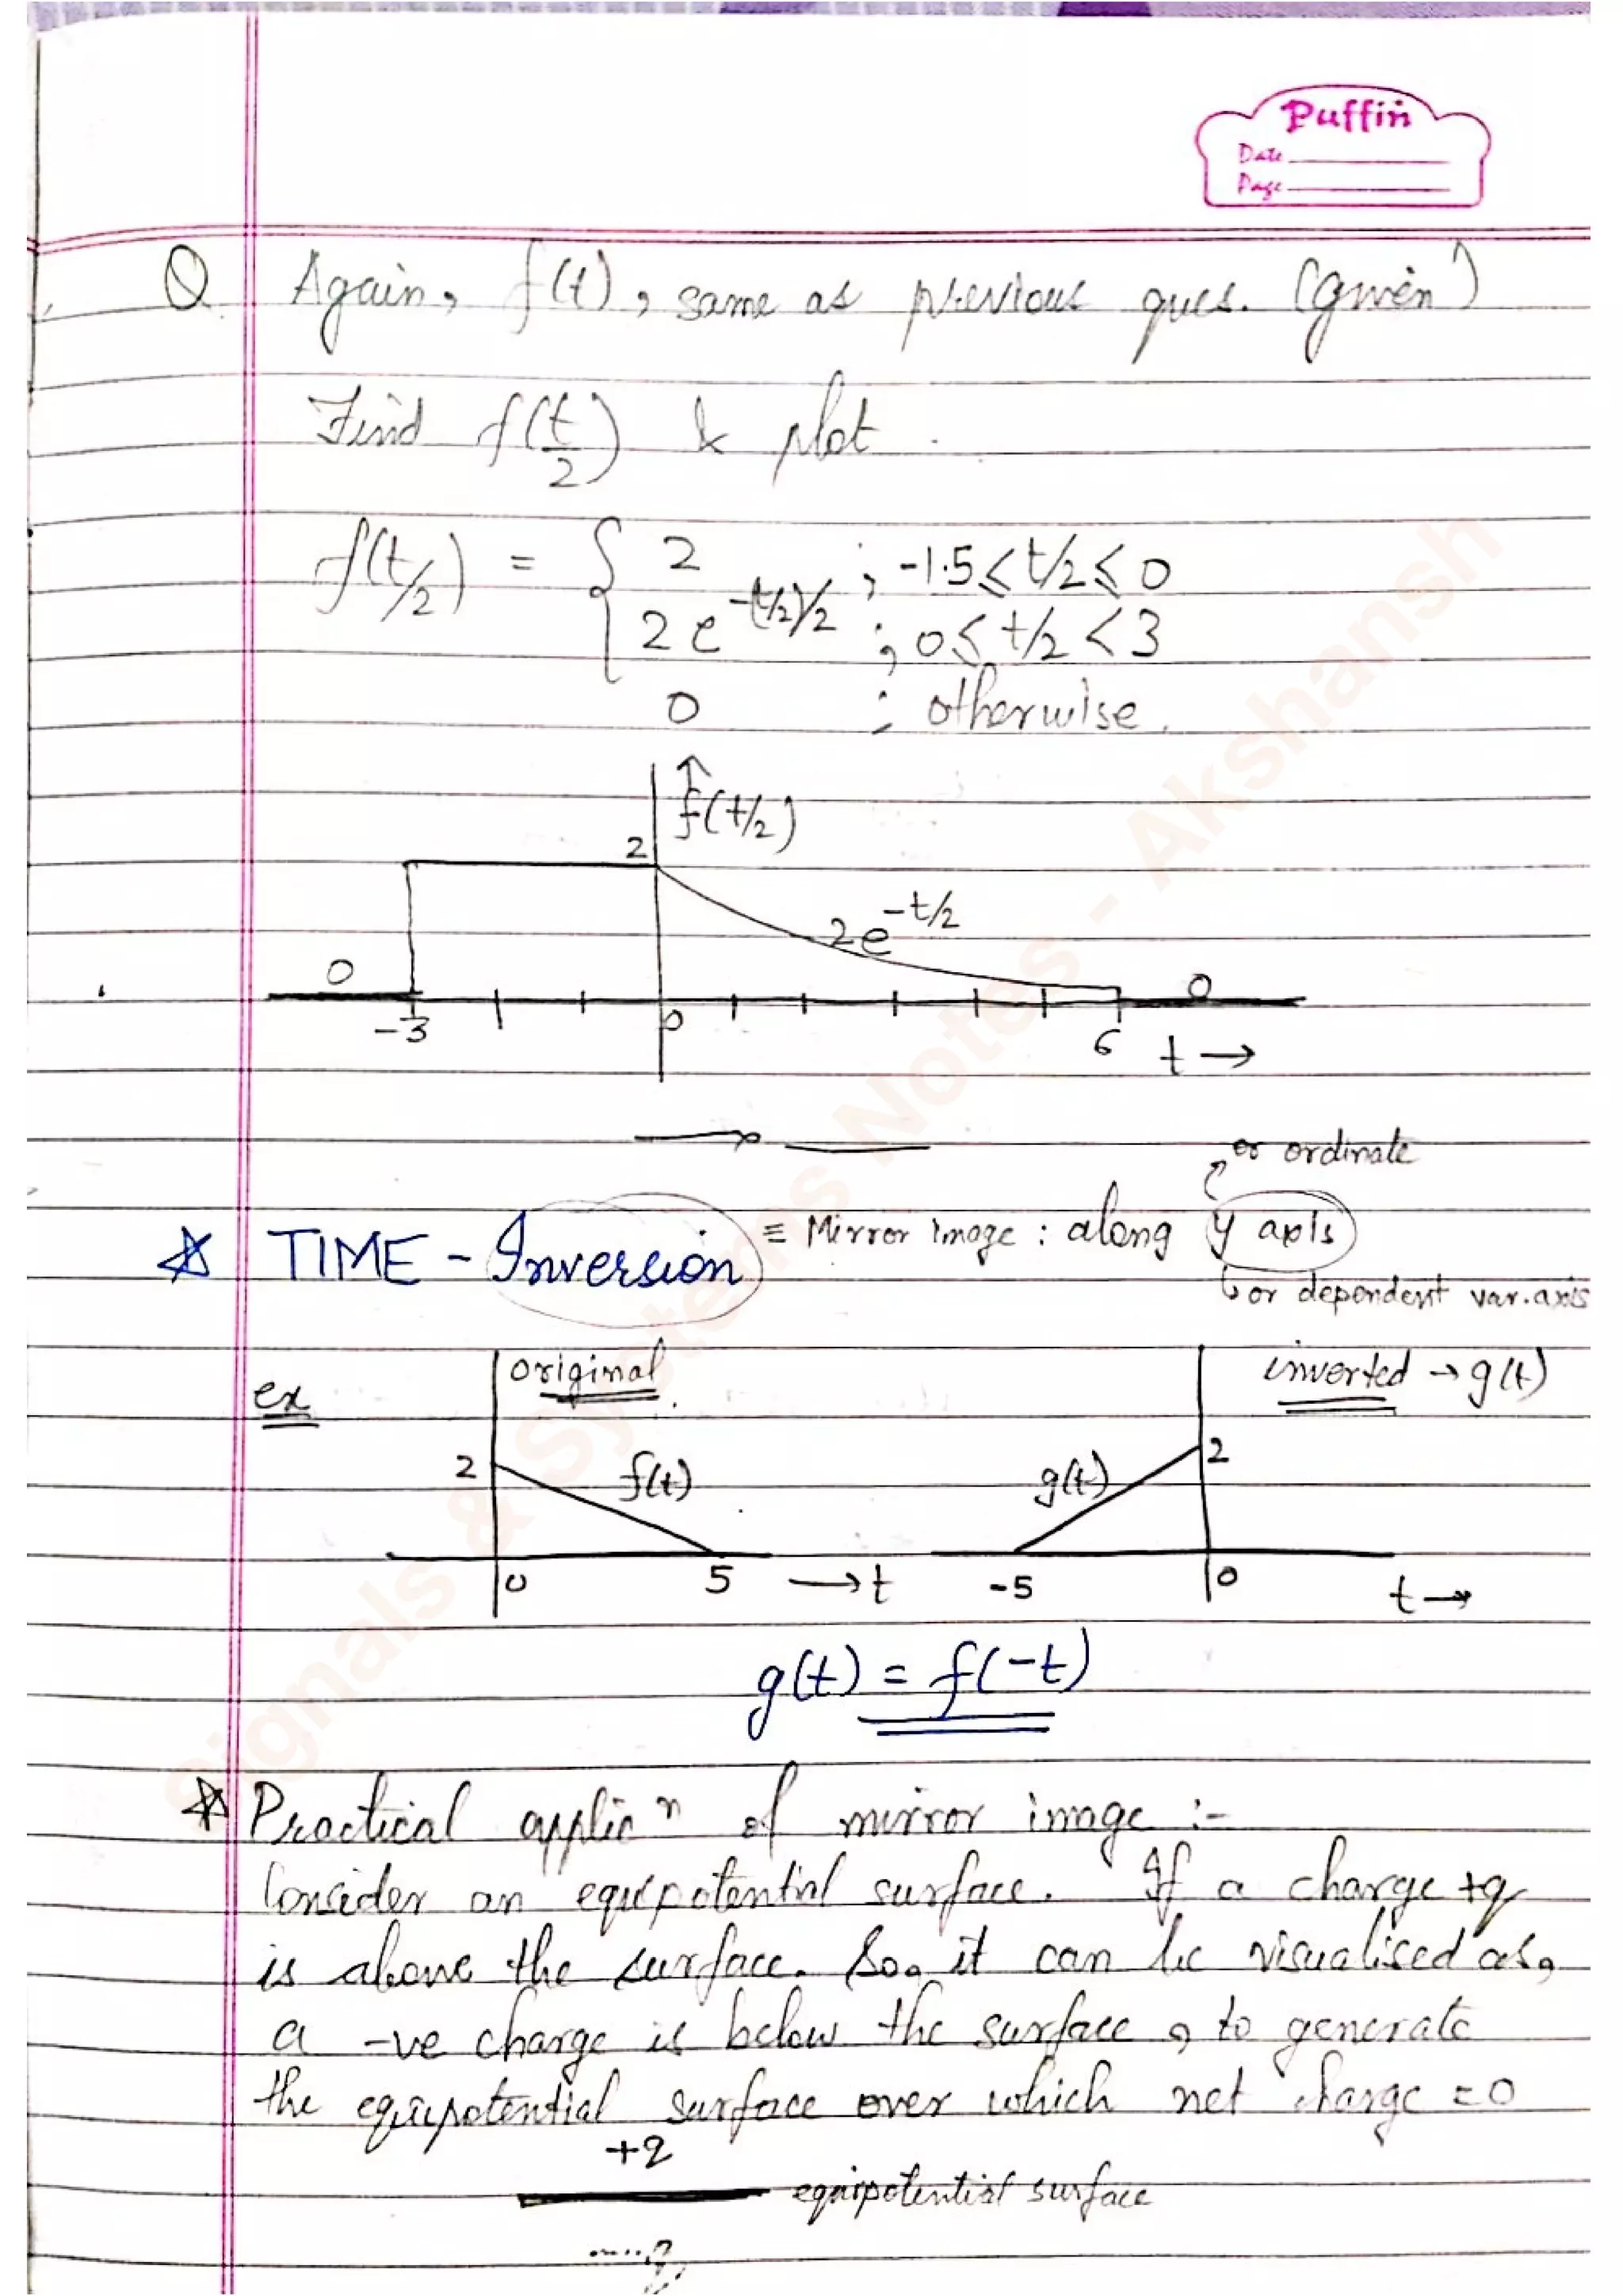 Puffin
Date
Page
Q Again, f(t), same as previous ques. (given)
Find f(t/2) & plot.
f(t/2) = { 2 ; -1.5 < t/2 ≤ 0
2e^-(t/2)/2 ; 0 ≤ t/2 < 3
0 ; otherwise.
↑
f(t/2)
2
2e^-t/2
0
0
-3
0
6
t →
or ordinate
☆ TIME - Inversion ≡ Mirror image : along y axis
↳ or dependent var. axis
ex
original
inverted → g(t)
2
f(t)
g(t)
2
0
5
→ t
-5
0
t →
g(t) = f(-t)
☆ Practical applicⁿ of mirror image :-
Consider an equipotential surface. If a charge +q
is above the surface. So, it can be visualised as,
a -ve charge is below the surface, to generate
the equipotential surface over which net charge = 0
+q
equipotential surface
Signals & Systems Notes - Akshansh